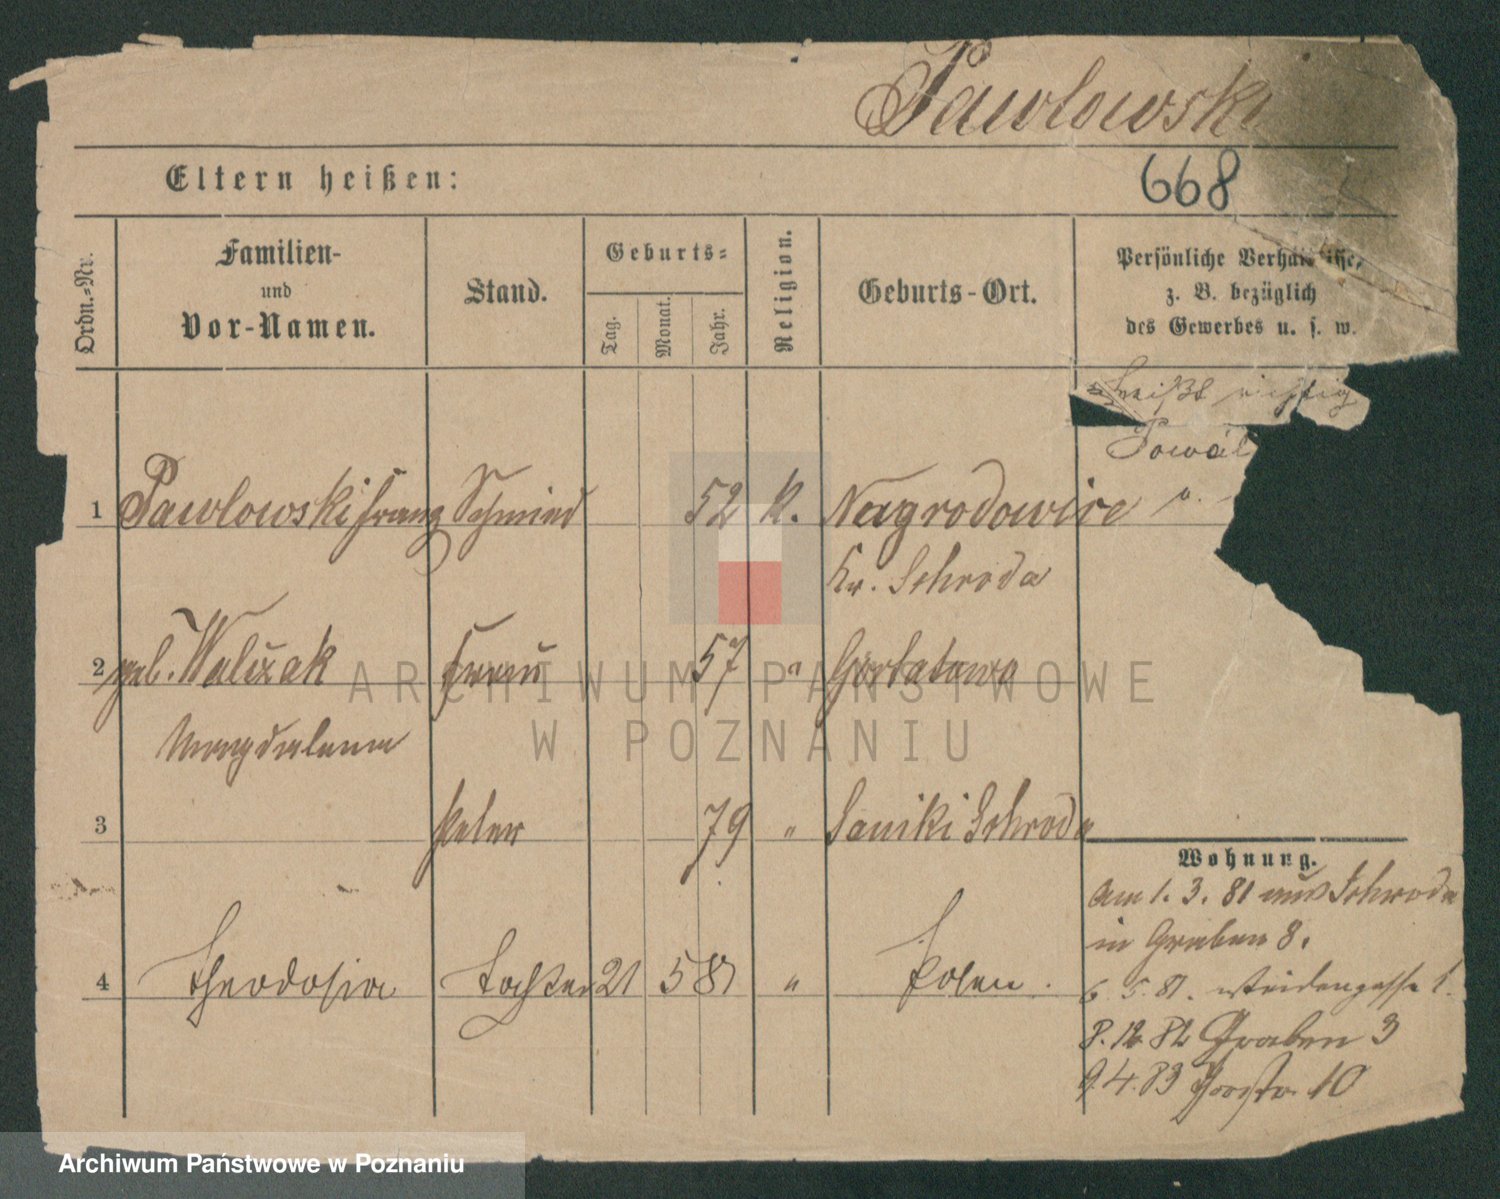 Pawlowski
Eltern heißen:
668
Ordn.-Nr.
Familien-
und
Vor-Namen.
Stand.
Geburts-
Tag.
Monat.
Jahr.
Religion.
Geburts-Ort.
Persönliche Verhältnisse,
z. B. bezüglich
des Gewerbes u. s. w.
heißt richtig
1 Pawlowski Franz Schmied 52 k. Nagrodowice
Kr. Schroda
2 geb. Walczak Frau 57 " Gortatowo
Magdalena
3 Peter 79 " Schroda
4 Theodosia Tochter 21 5 81 " Posen.
Wohnung.
Am 1. 3. 81 aus Schroda
in Graben 8.
6. 5. 81. Weidengasse 1.
8. 12. 82 Graben 3
9. 4. 83 10
ARCHIWUM PAŃSTWOWE
W POZNANIU
Archiwum Państwowe w Poznaniu